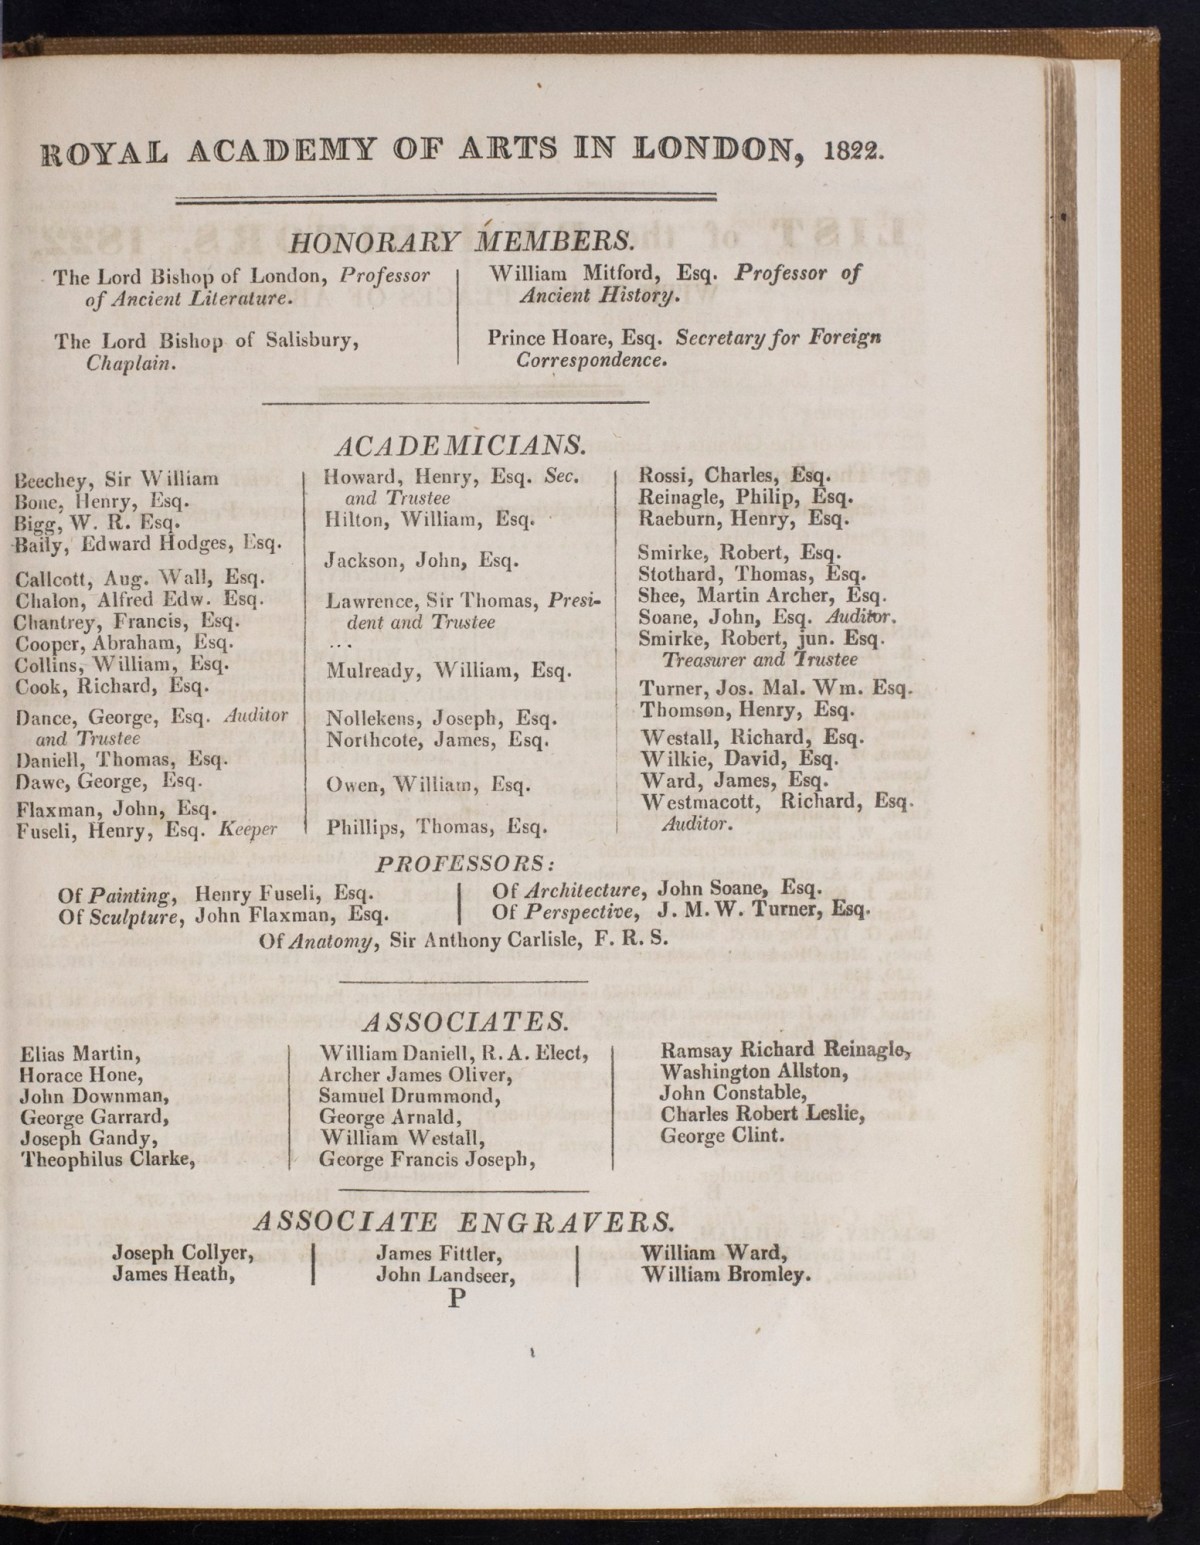 ROYAL ACADEMY OF ARTS IN LONDON, 1822.
HONORARY MEMBERS.
The Lord Bishop of London, Professor
of Ancient Literature.
The Lord Bishop of Salisbury,
Chaplain.
William Mitford, Esq. Professor of
Ancient History.
Prince Hoare, Esq. Secretary for Foreign
Correspondence.
ACADEMICIANS.
Beechey, Sir William
Bone, Henry, Esq.
Bigg, W. R. Esq.
Baily, Edward Hodges, Esq.
Callcott, Aug. Wall, Esq.
Chalon, Alfred Edw. Esq.
Chantrey, Francis, Esq.
Cooper, Abraham, Esq.
Collins, William, Esq.
Cook, Richard, Esq.
Dance, George, Esq. Auditor
and Trustee
Daniell, Thomas, Esq.
Dawe, George, Esq.
Flaxman, John, Esq.
Fuseli, Henry, Esq. Keeper
Howard, Henry, Esq. Sec.
and Trustee
Hilton, William, Esq.
Jackson, John, Esq.
Lawrence, Sir Thomas, Presi-
dent and Trustee
...
Mulready, William, Esq.
Nollekens, Joseph, Esq.
Northcote, James, Esq.
Owen, William, Esq.
Phillips, Thomas, Esq.
Rossi, Charles, Esq.
Reinagle, Philip, Esq.
Raeburn, Henry, Esq.
Smirke, Robert, Esq.
Stothard, Thomas, Esq.
Shee, Martin Archer, Esq.
Soane, John, Esq. Auditor.
Smirke, Robert, jun. Esq.
Treasurer and Trustee
Turner, Jos. Mal. Wm. Esq.
Thomson, Henry, Esq.
Westall, Richard, Esq.
Wilkie, David, Esq.
Ward, James, Esq.
Westmacott, Richard, Esq.
Auditor.
PROFESSORS:
Of Painting, Henry Fuseli, Esq.
Of Sculpture, John Flaxman, Esq.
Of Architecture, John Soane, Esq.
Of Perspective, J. M. W. Turner, Esq.
Of Anatomy, Sir Anthony Carlisle, F. R. S.
ASSOCIATES.
Elias Martin,
Horace Hone,
John Downman,
George Garrard,
Joseph Gandy,
Theophilus Clarke,
William Daniell, R. A. Elect,
Archer James Oliver,
Samuel Drummond,
George Arnald,
William Westall,
George Francis Joseph,
Ramsay Richard Reinagle,
Washington Allston,
John Constable,
Charles Robert Leslie,
George Clint.
ASSOCIATE ENGRAVERS.
Joseph Collyer,
James Heath,
James Fittler,
John Landseer,
William Ward,
William Bromley.
P